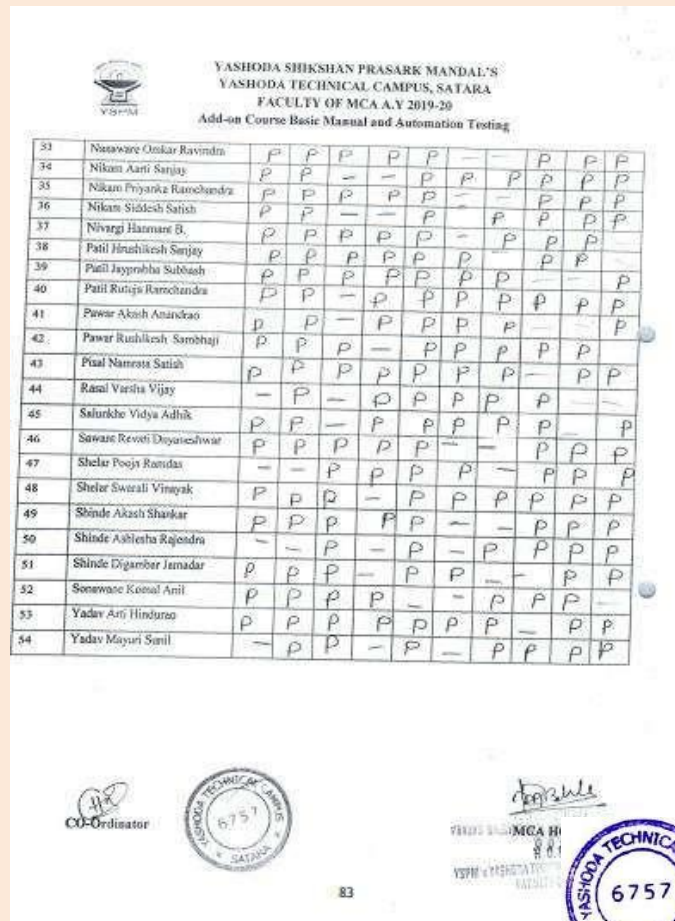 YSPM
YASHODA SHIKSHAN PRASARK MANDAL'S
YASHODA TECHNICAL CAMPUS, SATARA
FACULTY OF MCA A.Y 2019-20
Add-on Course Basic Manual and Automation Testing
33 Nanaware Omkar Ravindra P P P P P — — P P P
34 Nikam Aarti Sanjay P P — — P P P P P P
35 Nikam Priyanka Ramchandra P P P P P — — P P P
36 Nikam Siddesh Satish P P — — P P P P P
37 Nivargi Hanmant B. P P P P P — P P P
38 Patil Hrushikesh Sanjay P P P P P P P P —
39 Patil Jayprabha Subhash P P P P P P P — — P
40 Patil Rutuja Ramchandra P P — P P P P P P P
41 Pawar Akash Anandrao P P — P P P P — — P
42 Pawar Rushikesh Sambhaji P P P — P P P P P
43 Pisal Namrata Satish P P P P P P P — P P
44 Rasal Varsha Vijay — P — P P P P P — —
45 Salunkhe Vidya Adhik P P — P P P P P — P
46 Saware Revati Dnyaneshwar P P P P P — — P P P
47 Shelar Pooja Ramdas — — P P P P — P P P
48 Shelar Swarali Vinayak P P P — P P P P P P
49 Shinde Akash Shankar P P P P P — — P P P
50 Shinde Ashlesha Rajendra — — P — P — P P P P
51 Shinde Digambar Jamadar P P P — P P — — P P
52 Sonawane Komal Anil P P P P — — P P P —
53 Yadav Arti Hindurao P P P P P P P — P P
54 Yadav Mayuri Sunil — P P — P — P P P P
CO-Ordinator
YASHODA TECHNICAL CAMPUS
6757
SATARA
MCA
YASHODA TECHNICA
6757
83